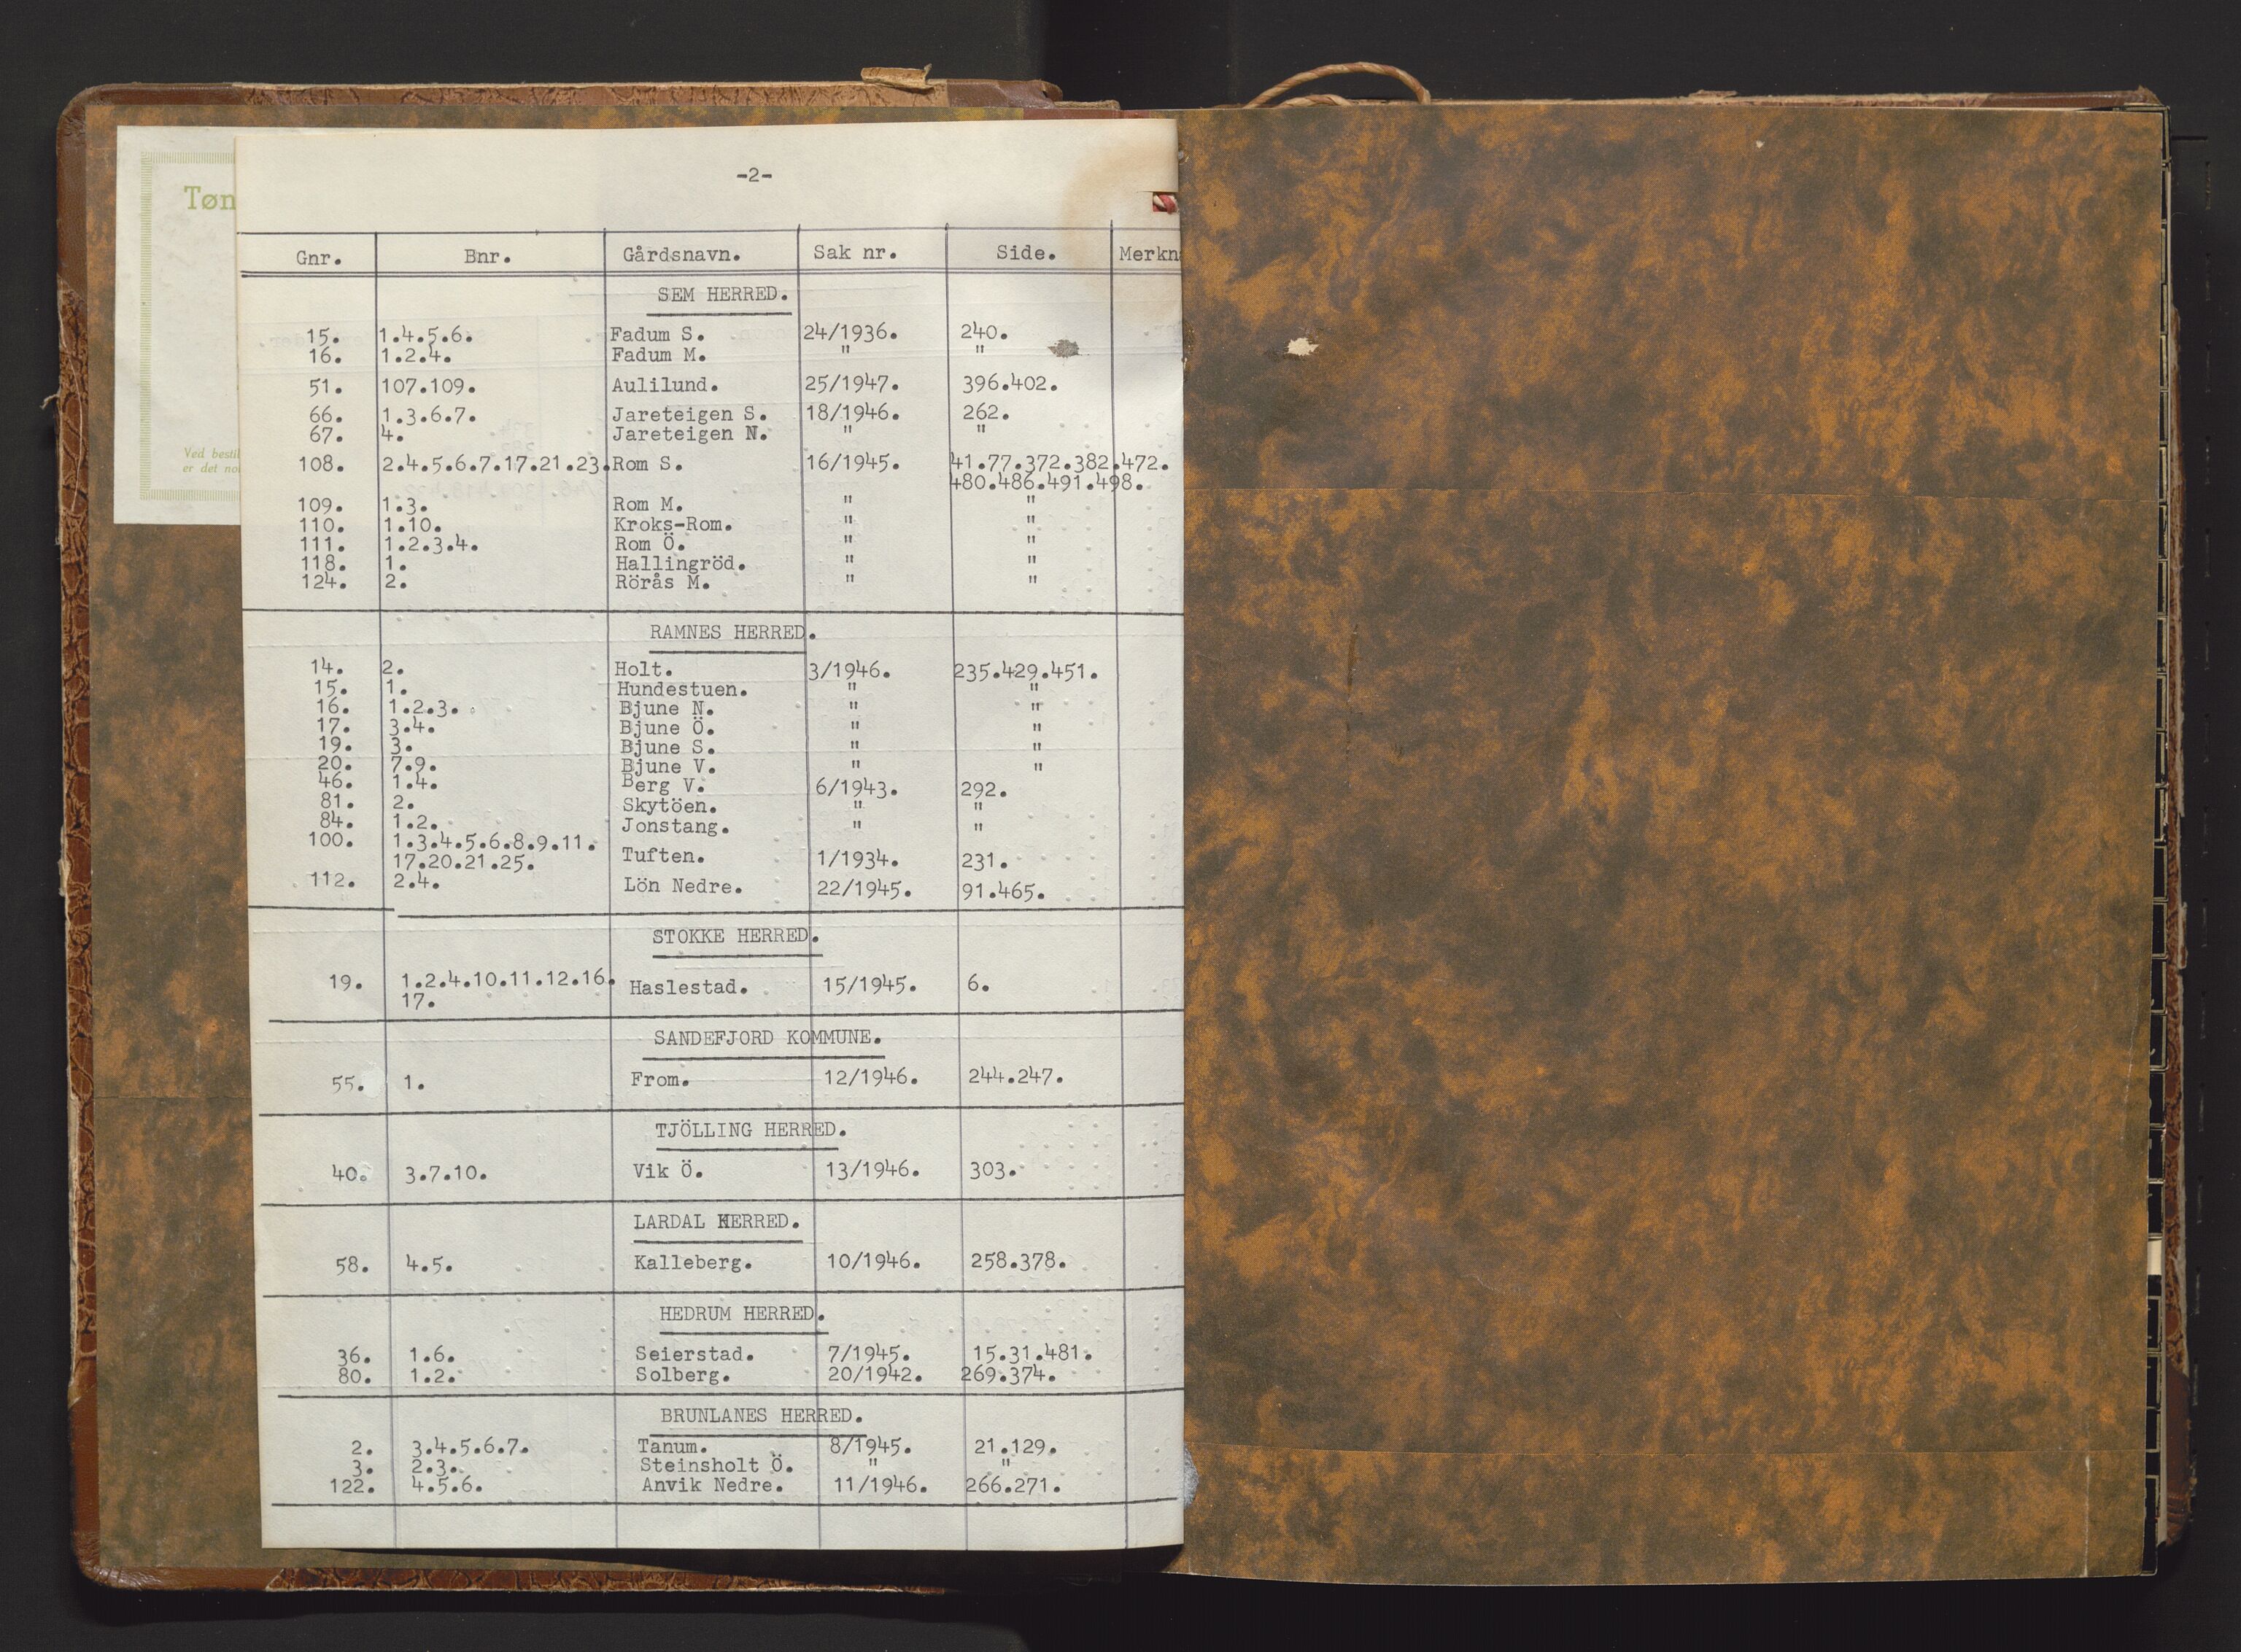 -2-
Gnr. Bnr. Gårdsnavn. Sak nr. Side.
SEM HERRED.
15. 1.4.5.6. Fadum S. 24/1936. 240.
16. 1.2.4. Fadum M. " "
51. 107.109. Aulilund. 25/1947. 396.402.
66. 1.3.6.7. Jareteigen S. 18/1946. 262.
67. 4. Jareteigen N. " "
108. 2.4.5.6.7.17.21.23. Rom S. 16/1945. 41.77.372.382.472.
480.486.491.498.
109. 1.3. Rom M. " "
110. 1.10. Kroks-Rom. " "
111. 1.2.3.4. Rom Ö. " "
118. 1. Hallingröd. " "
124. 2. Rörås M. " "
RAMNES HERRED.
14. 2. Holt. 3/1946. 235.429.451.
15. 1. Hundestuen. " "
16. 1.2.3. Bjune N. " "
17. 3.4. Bjune Ö. " "
19. 3. Bjune S. " "
20. 7.9. Bjune V. " "
46. 1.4. Berg V. 6/1943. 292.
81. 2. Skytöen. " "
84. 1.2. Jonstang. " "
100. 1.3.4.5.6.8.9.11.
17.20.21.25. Tuften. 1/1934. 231.
112. 2.4. Lön Nedre. 22/1945. 91.465.
STOKKE HERRED.
19. 1.2.4.10.11.12.16. Haslestad. 15/1945. 6.
17.
SANDEFJORD KOMMUNE.
55. 1. From. 12/1946. 244.247.
TJÖLLING HERRED.
40. 3.7.10. Vik Ö. 13/1946. 303.
LARDAL HERRED.
58. 4.5. Kalleberg. 10/1946. 258.378.
HEDRUM HERRED.
36. 1.6. Seierstad. 7/1945. 15.31.481.
80. 1.2. Solberg. 20/1942. 269.374.
BRUNLANES HERRED.
2. 3.4.5.6.7. Tanum. 8/1945. 21.129.
3. 2.3. Steinsholt Ö. " "
122. 4.5.6. Anvik Nedre. 11/1946. 266.271.
Tøn
Ved bestil
er det